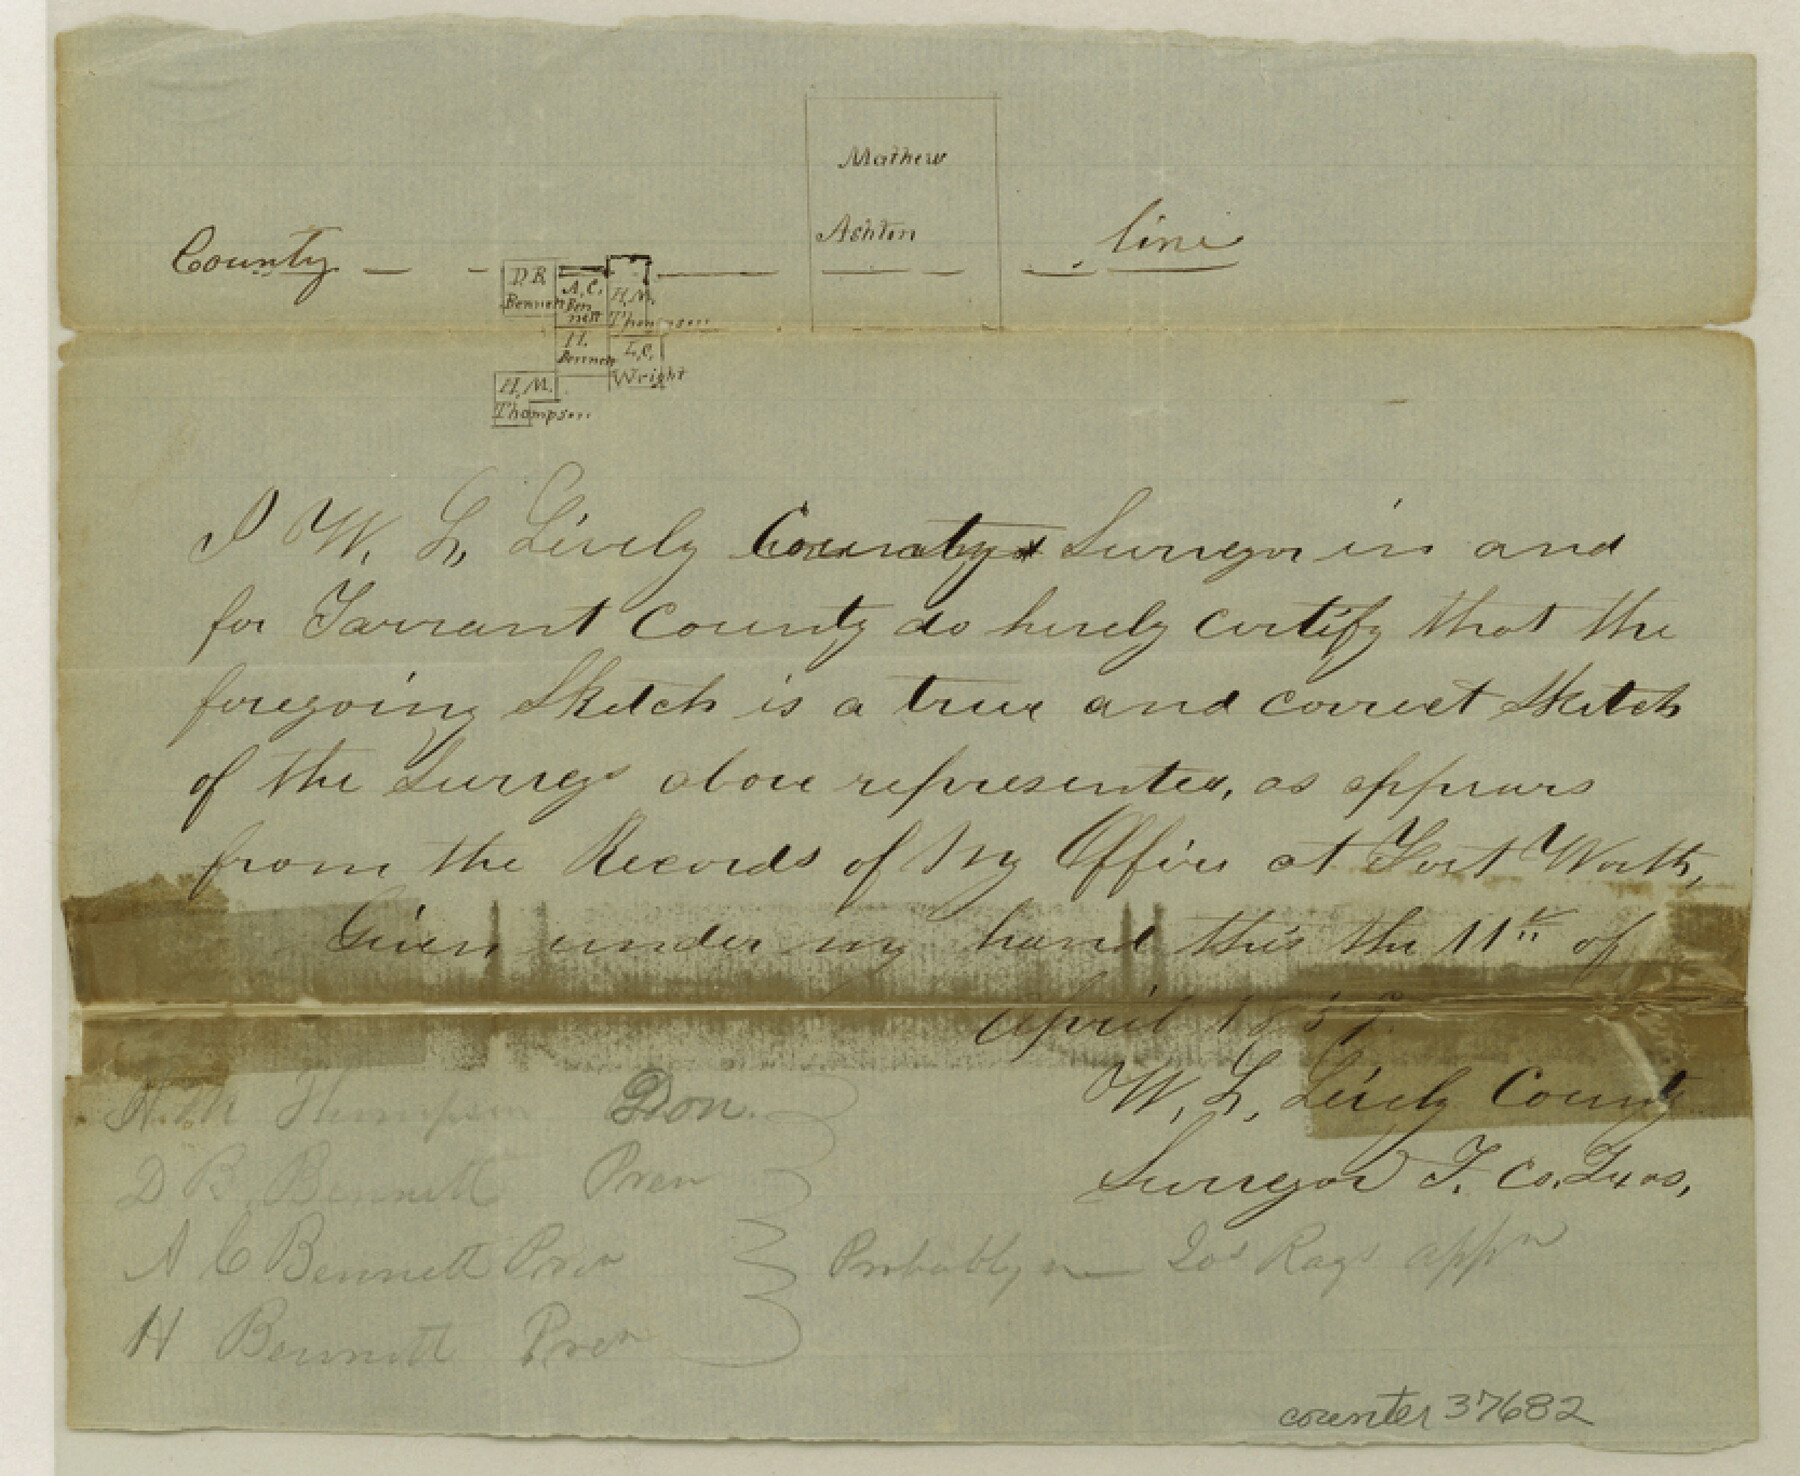 Mathew
Ashton
County line
D.B.
Bennett
A.C.
Ben
nett
H.M.
Thompson
H.
Bennett
L.C.
Wright
H.M.
Thompson
I W. L. Lively County Surveyor in and
for Tarrant County do hereby certify that the
foregoing Sketch is a true and correct Sketch
of the Surveys above represented, as appears
from the Records of My Office at Fort Worth,
Given under my hand this the 11th of
April
W. L. Lively County
Surveyor T. Co. Texas,
H. M Thompson Don.
D B Bennett Pren
A C Bennett Pren
H Bennett Pren
Probably in
counter 37682